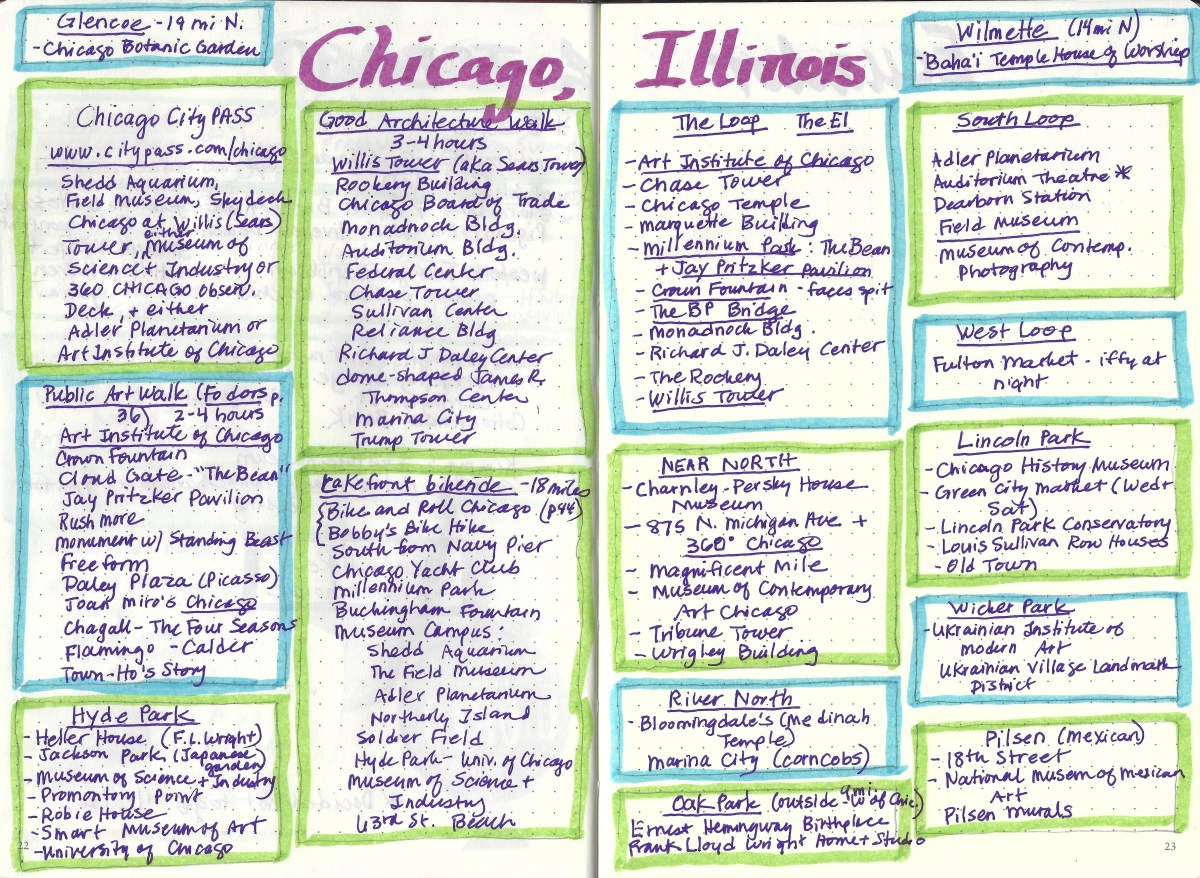 Glencoe - 19 mi N.
- Chicago Botanic Garden
Chicago, Illinois
Wilmette (14 mi N)
- Baha'i Temple House of Worship
Chicago CityPASS
www.citypass.com/chicago
Shedd Aquarium,
Field Museum, Skydeck
Chicago at Willis (Sears)
Tower, either in Museum of
Science + Industry or
360 CHICAGO observ.
Deck, + either
Adler Planetarium or
Art Institute of Chicago
Public Art Walk (Fodors p.
36) 2-4 hours
Art Institute of Chicago
Crown Fountain
Cloud Gate - "The Bean"
Jay Pritzker Pavilion
Rush more
monument w/ Standing Beast
Free form
Daley Plaza (Picasso)
Joan Miro's Chicago
Chagall - The Four Seasons
Flamingo - Calder
Town-Ho's Story
Hyde Park
- Heller House (F.L. Wright)
- Jackson Park (Japanese
garden)
- Museum of Science + Industry
- Promontory Point
- Robie House
- Smart Museum of Art
- University of Chicago
22
Good Architecture Walk
3-4 hours
Willis Tower (aka Sears Tower)
Rookery Building
Chicago Board of Trade
Monadnoch Bldg.
Auditorium Bldg.
Federal Center
Chase Tower
Sullivan Center
Reliance Bldg
Richard J Daley Center
dome-shaped James R.
Thompson Center
Marina City
Trump Tower
Lakefront bikeride - 18 miles
Bike and Roll Chicago (p44)
Bobby's Bike Hike
South from Navy Pier
Chicago Yacht Club
Millennium Park
Buckingham Fountain
Museum Campus:
Shedd Aquarium
The Field Museum
Adler Planetarium
Northerly Island
Soldier Field
Hyde Park - Univ. of Chicago
Museum of Science +
Industry
63rd St. Beach
The Loop The El
- Art Institute of Chicago
- Chase Tower
- Chicago Temple
- Marquette Building
- Millennium Park: The Bean
+ Jay Pritzker Pavilion
- Crown Fountain - faces spit
- The BP Bridge
- Monadnoch Bldg.
- Richard J. Daley Center
- The Rookery
- Willis Tower
NEAR NORTH
- Charnley-Persky House
Museum
- 875 N. Michigan Ave +
360° Chicago
- Magnificent Mile
- Museum of Contemporary
Art Chicago
- Tribune Tower
- Wrigley Building
River North
- Bloomingdale's (Medinah
Temple)
Marina City (corncobs)
Oak Park (outside 9mi W of Chic.)
Ernest Hemingway Birthplace
Frank Lloyd Wright Home + Studio
South Loop
Adler Planetarium
Auditorium Theatre *
Dearborn Station
Field Museum
Museum of Contemp.
Photography
West Loop
Fulton Market - iffy at
night
Lincoln Park
- Chicago History Museum
- Green City Market (Wed +
Sat)
- Lincoln Park Conservatory
- Louis Sullivan Row Houses
- Old Town
Wicker Park
- Ukrainian Institute of
Modern Art
Ukrainian Village Landmark
District
Pilsen (Mexican)
- 18th Street
- National Musem of Mexican
Art
Pilsen Murals
23